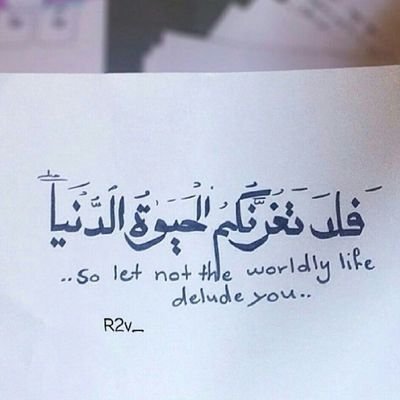 فَلَا تَغُرَّنَّكُمُ الْحَيَوٰةُ الدُّنْيَا ۖ
..so let not the worldly life
delude you..
R2v_